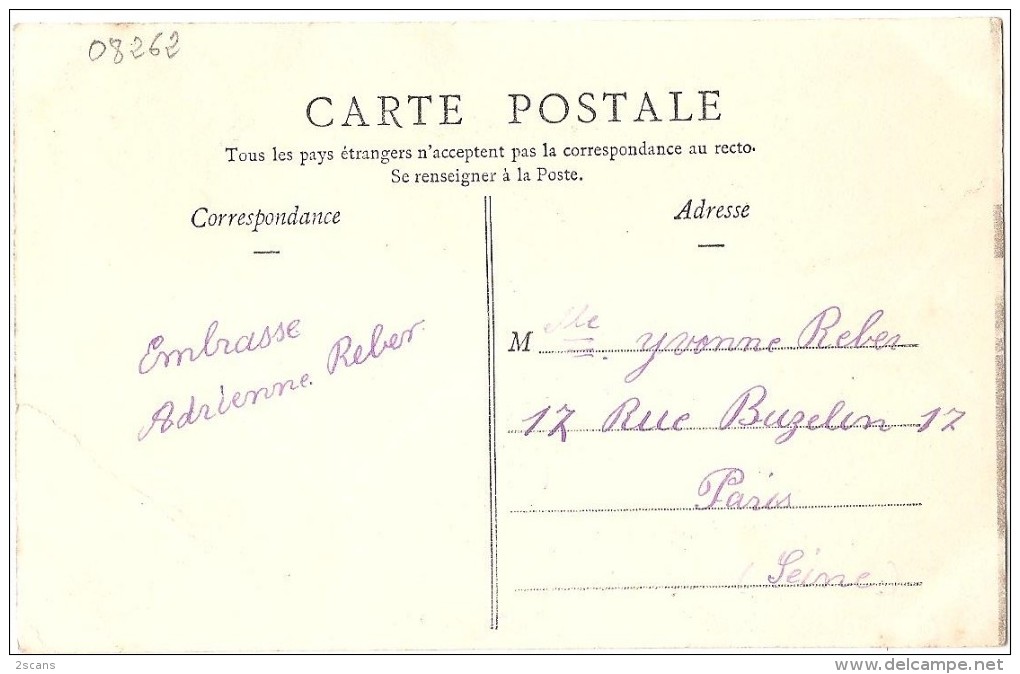 08262
CARTE POSTALE
Tous les pays étrangers n'acceptent pas la correspondance au recto.
Se renseigner à la Poste.
Correspondance
Adresse
Embrasse
Adrienne Reber
M elle Yvonne Reber
17 Rue Buzelin 17
Paris
(Seine)
2scans
www.delcampe.net